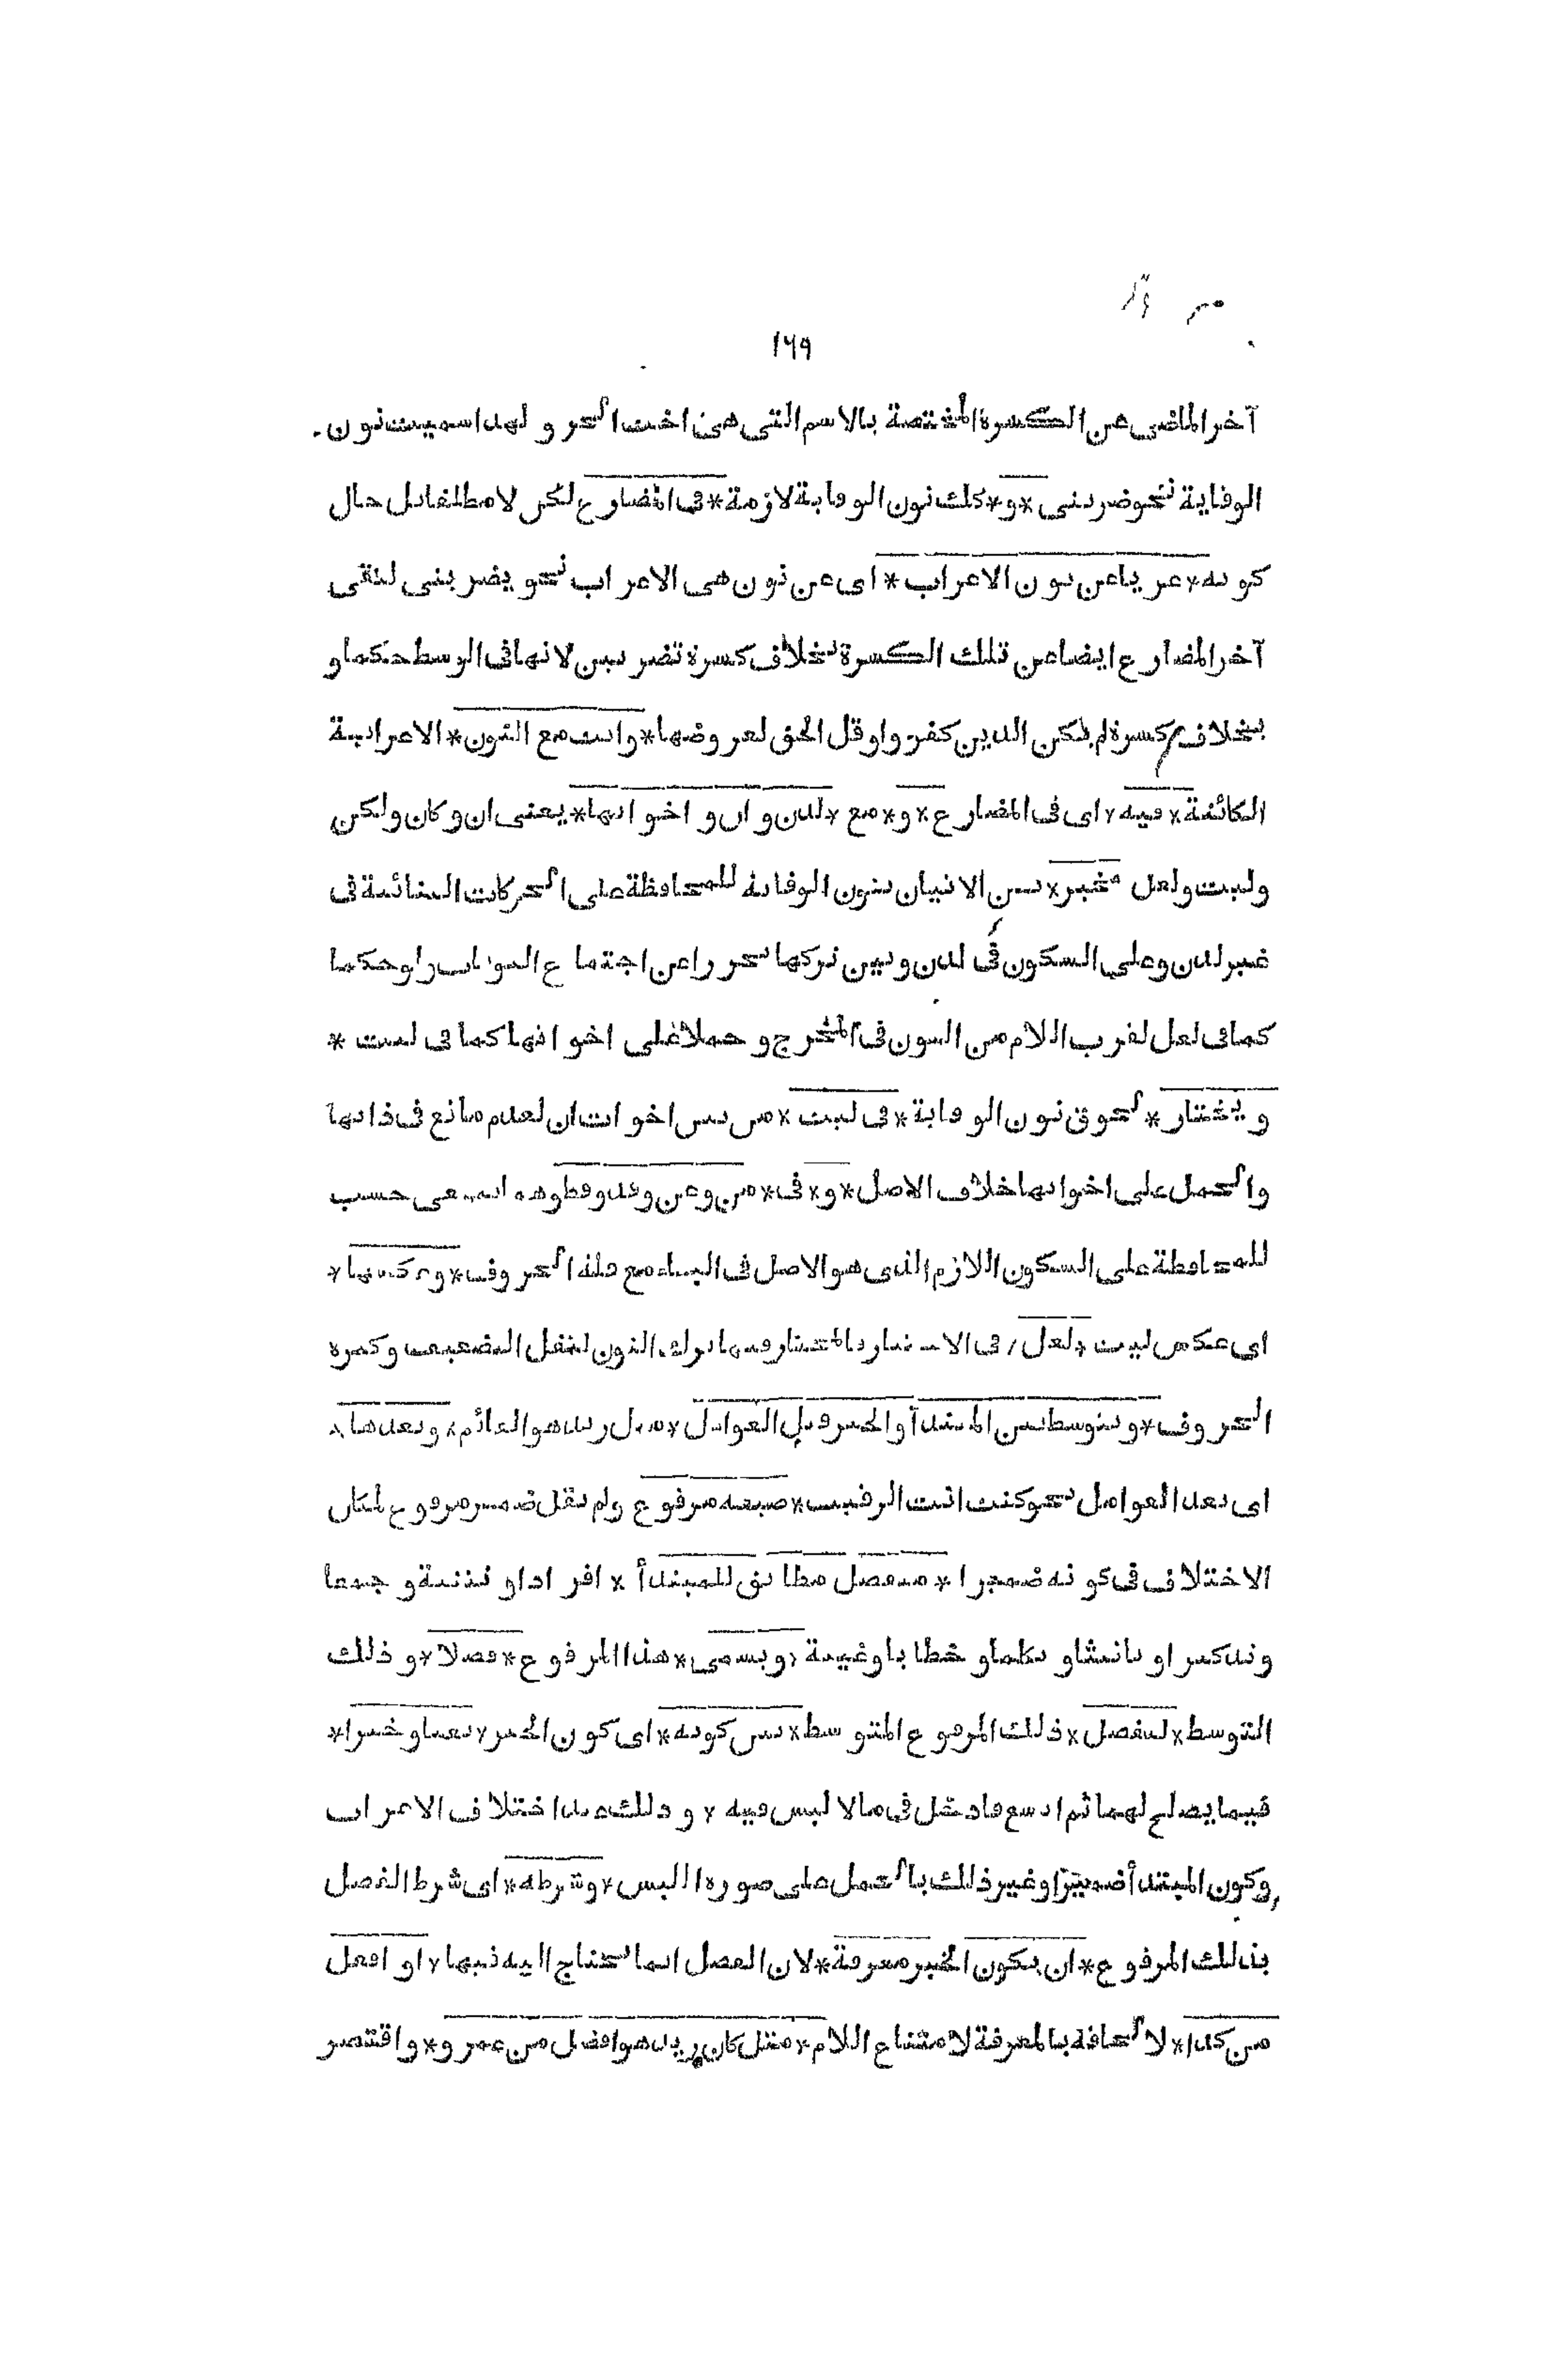 ١٦٩
آخر الماضى عن الكسرة المختصة بالاسم التى هى اخت الجر و لهذا سميت نون
الوقاية نحو ضربنى *و* كذلك نون الوقاية لازمة * فى المضارع لكن لا مطلقا بل حال
كونه * عريا عن نون الاعراب * اى عن نون هى الاعراب نحو يضربنى لتقى
آخر المضارع ايضا عن تلك الكسرة بخلاف كسرة تضربين لانها فى الوسط حكما و
بخلاف كسرة لم يكن الذين كفروا و قل الحق لعروضها * وانت مع النون * الاعرابية
الكائنة * فيه * اى فى المضارع * و * مع * لدن و ان و اخواتها * يعنى ان و كان ولكن
وليت ولعل * مخير * بين الاتيان بنون الوقاية للمحافظة على الحركات البنائية فى
غير لدن وعلى السكون فى لدن وبين تركها تحررا عن اجتماع النونات ولو حكما
كما فى لعل لقرب اللام من النون فى المخرج و حملا على اخواتها كما فى ليت *
و يختار * لحوق نون الوقاية * فى ليت * من بين اخوات ان لعدم مانع فى ذاتها
والحمل على اخواتها خلاف الاصل * و * فى * من وعن وقد وقط وهما بمعنى حسب
للمحافظة على السكون اللازم الذى هو الاصل فى البناء مع قلة الحروف * وعكسها *
اى عكس ليت * لعل * فى الاختيار فالمختار فيها ترك النون لثقل التضعيف وكثرة
الحروف * و يتوسط بين المبتدأ والخبر قبل العوامل * مثل زيد هو القائم * وبعدها *
اى بعد العوامل نحو كنت انت الرقيب * صيغة مرفوع ولم يقل ضمير مرفوع لمكان
الاختلاف فى كونه ضميرا * منفصل مطابق للمبتدأ * افرادا و تثنية و جمعا
وتذكيرا و تانيثا و تكلما و خطابا و غيبة * ويسمى * هذا المرفوع * فصلا * و ذلك
التوسط * ليفصل * ذلك المرفوع المتوسط * بين كونه * اى كون الخبر * نعتا و خبرا *
فيما يصلح لهما ثم اتسع فادخل فى ما لا لبس فيه * و ذلك عند اختلاف الاعراب
وكون المبتدأ ضميرا وغير ذلك بالحمل على صورة اللبس * وشرطه * اى شرط الفصل
بذلك المرفوع * ان يكون الخبر معرفة * لان الفصل انما يحتاج اليه فيها * او افعل
من كذا * لالحاقه بالمعرفة لامتناع اللام * مثل كان زيد هو افضل من عمرو * و اقتصر